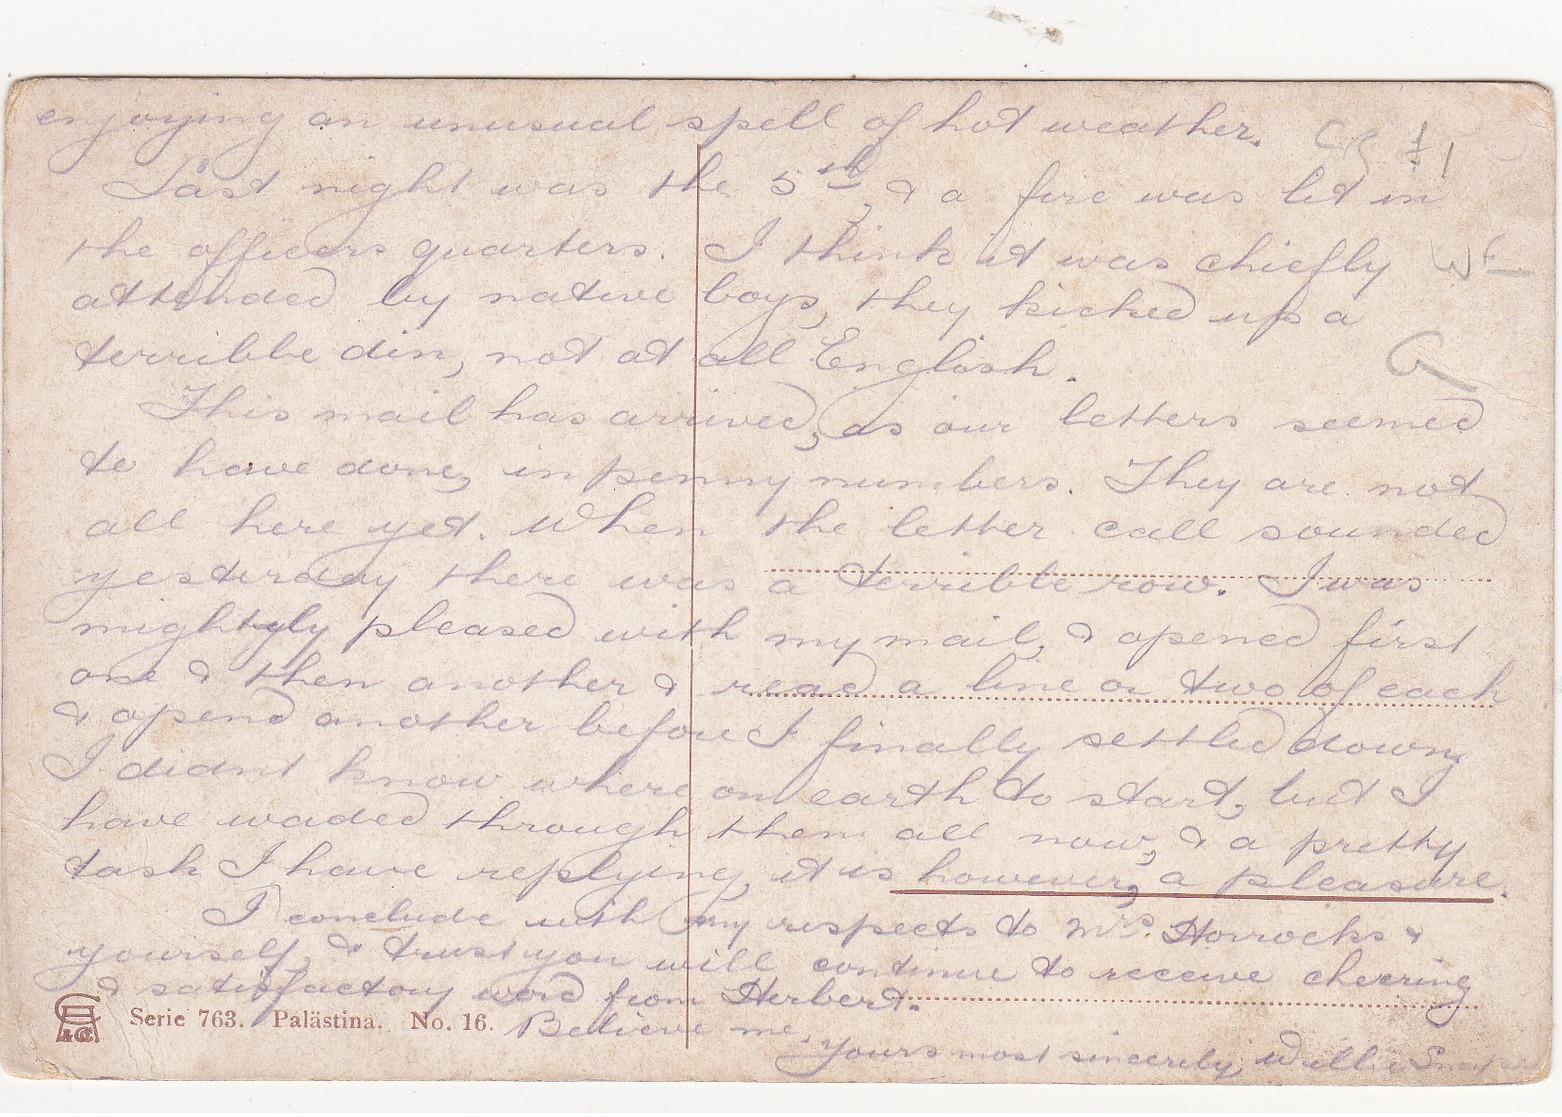 enjoying an unusual spell of hot weather.
Last night was the 5th, & a fire was lit in
the officers quarters. I think it was chiefly
attended by native boys, they kicked up a
terribbe din, not at all English.
This mail has arrived, as our letters seemed
to have done, in penny numbers. They are not
all here yet. When the letter call sounded
yesterday there was a terrible row. I was
mightyly pleased with my mail, & opened first
one & then another & read a line or two of each
& opend another before I finally settled down,
I didnt know where on earth to start, but I
have waded through them all now, & a pretty
task I have replying, it is however, a pleasure.
I conclude with my respects to Mrs. Horrocks &
yourself, & trust you will continue to receive cheering
& satisfactory word from Herbert.
Believe me,
Yours most sincerely, Willie
Serie 763. Palästina. No. 16.
£1
G